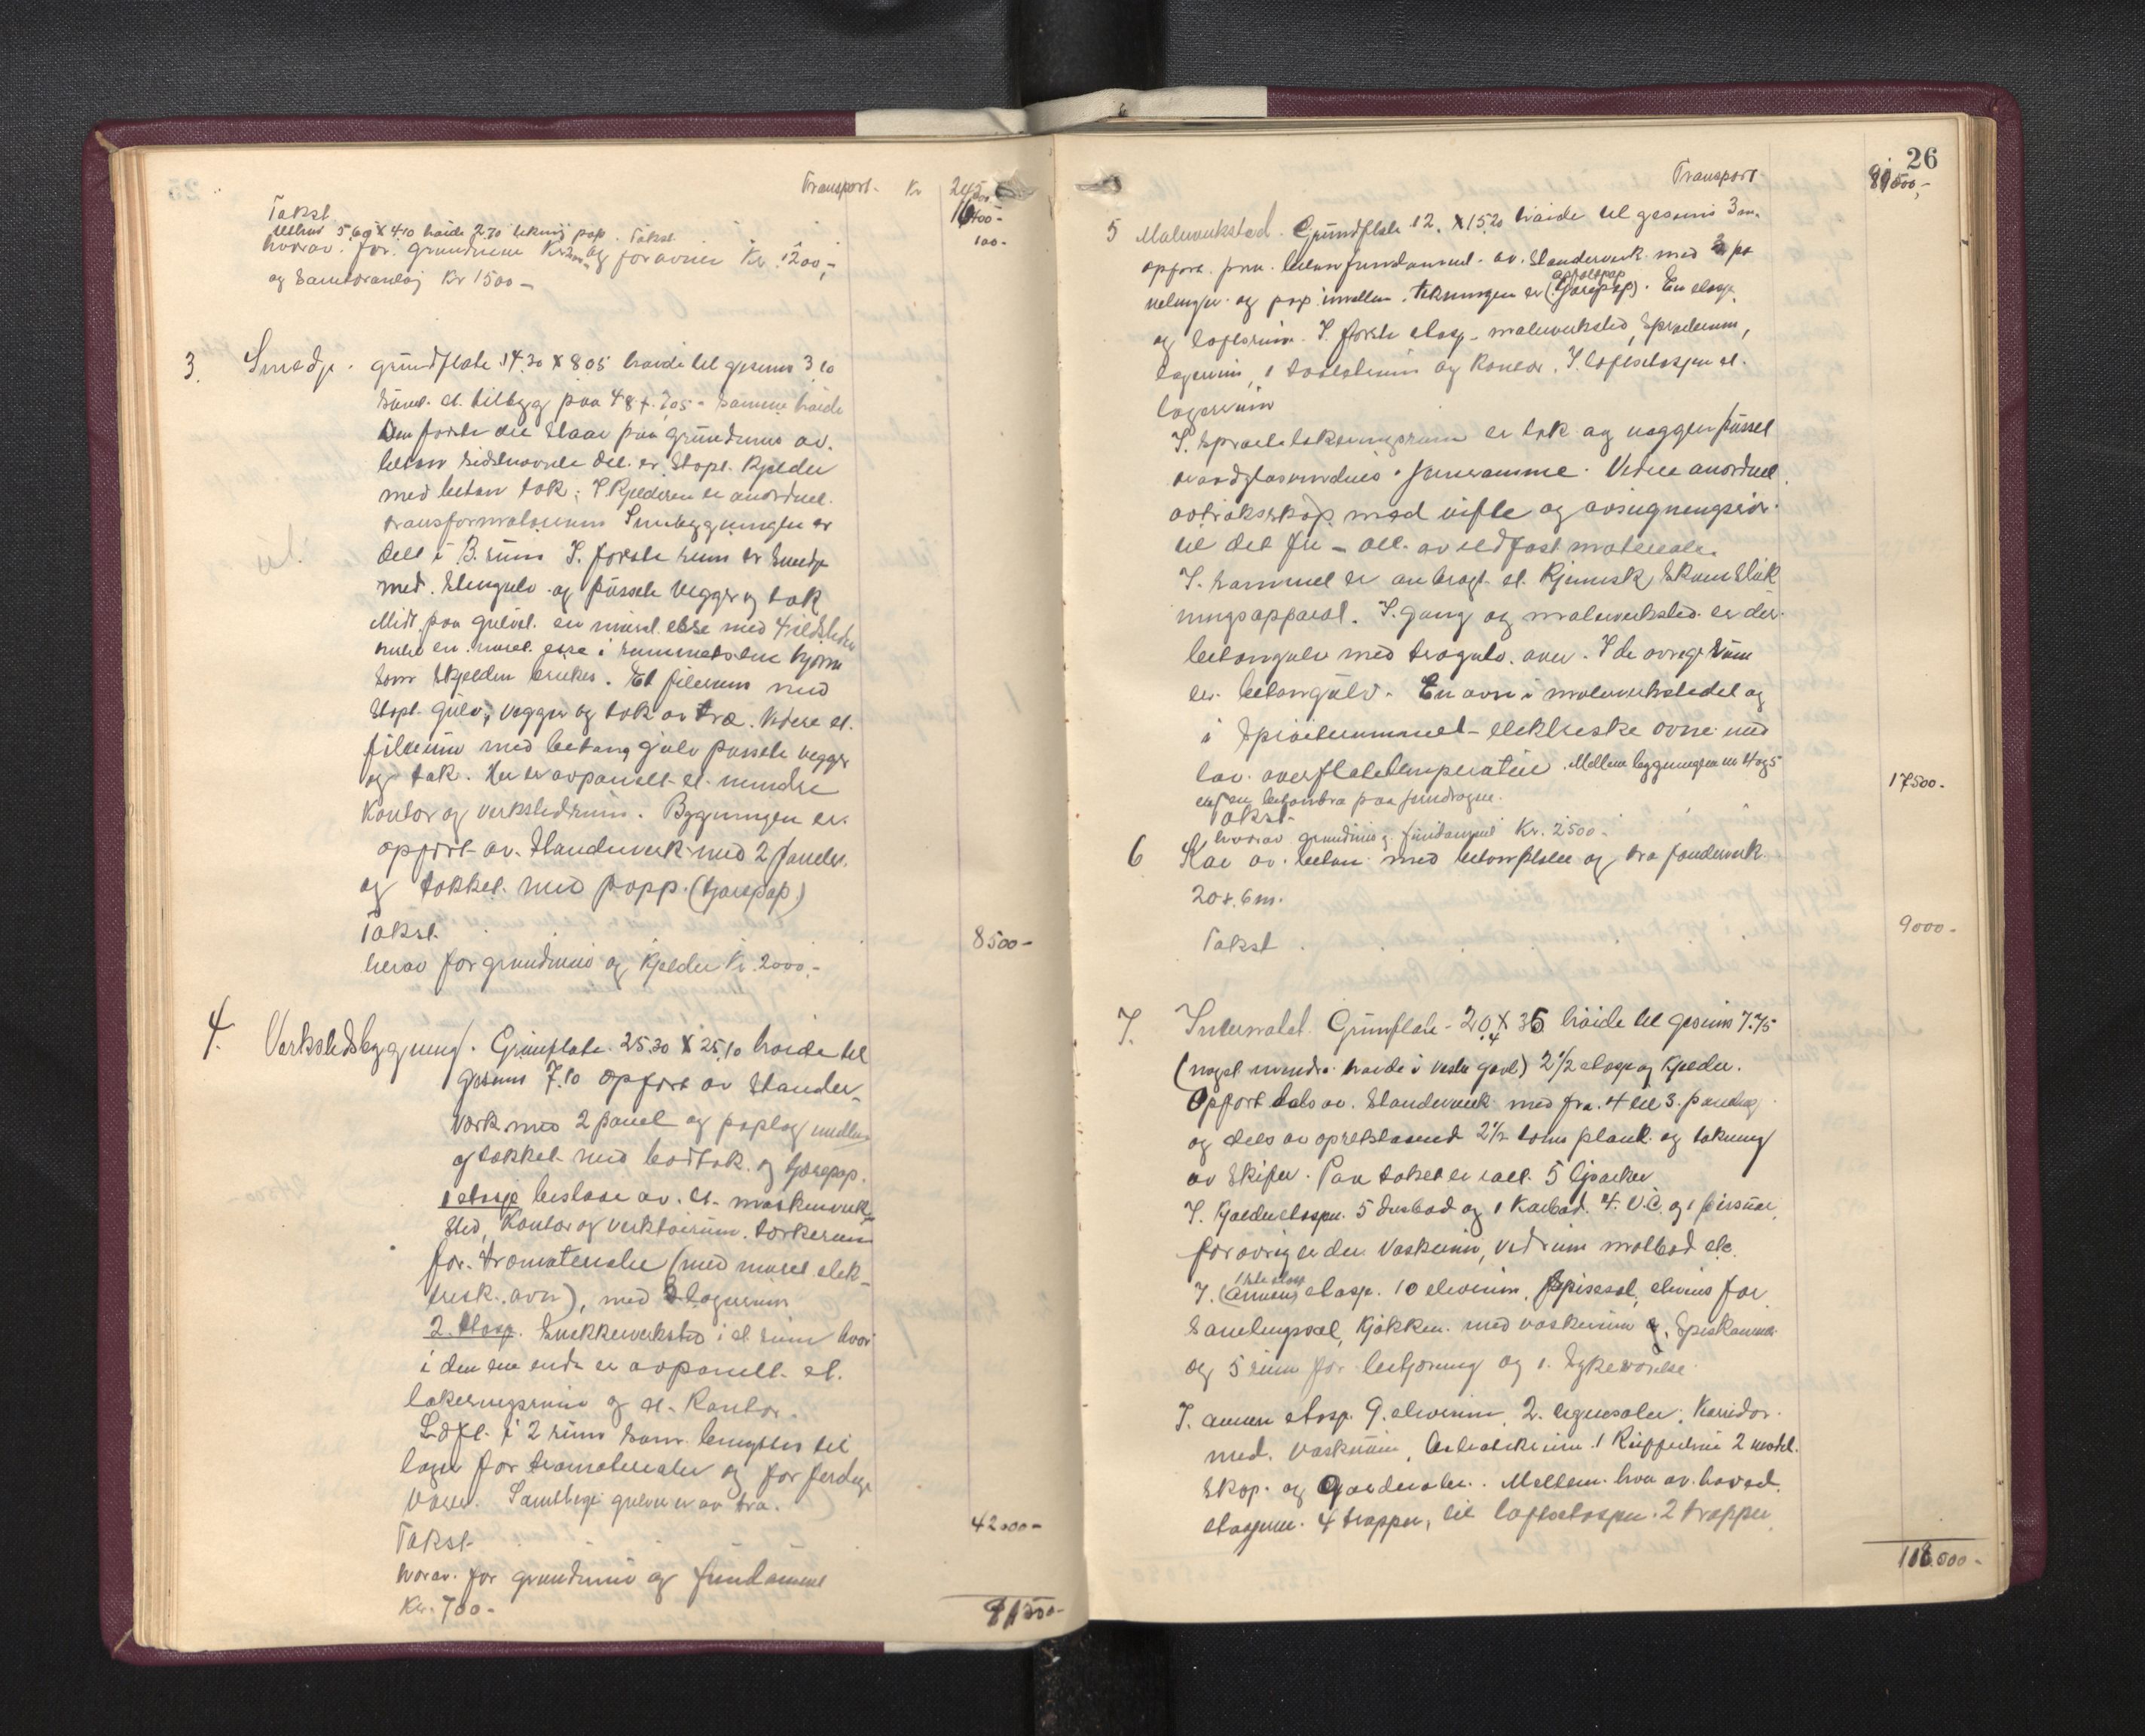 Transport. Kr
Takst 16400-
uthus 5,60 X 4,10 høide 2,70 tekning pap. Takst 100-
hvorav for grundmur Kr og for ovner Kr. 1200,-
og Kr 1500-
3. Smedje. grundflate 14.30 X 8.05 høide til gesims 3.10
samt et tilbygg paa 4.8 x 7.05 - samme høide
Den første del staar paa grundmur av
beton sidstnævnte del er støpt kjelder
med beton tak. I Kjelderen er anordnet
transformatorrum
delt i 3 rum I første rum er smedje
med stengulv og pussete vegger og tak
Midt paa gulvet en muret esse med
en muret esse i rummets ene hjørne
som skjelden brukes. Et filerum med
støpt gulv, vegger og tak av træ. Videre et
filerum med betong gulv pussete vegger
og tak. Her er avpanelt et mindre
Kontor og verkstedrum. Bygningen er
opført av standerverk med 2 paneler
og tækket med papp. (tjærepap)
Takst 8500-
herav for grundmur og kjelder Kr. 2000,-
4. Verkstedsbygning. Grundflate 25.30 X 25.10 høide til
gesims 7.10 opført av stander-
værk med 2 panel og paplag mellem
og tækket med bordtak og tjærepap.
1 etasje bestaar av et maskinverk-
sted, Kontor og verktøirum. tørkerum
for træmaterialer (med muret elek-
trisk ovn), med 3 lagerrum
2. etasje. Snekkerverksted i et rum hvor
i den ene ende er avpanelt et
lakeringsrum og et Kontor.
Loft i 2 rum som benyttes til
lager for træmaterialer og for ferdige
varer. Samtlige gulver er av træ.
Takst 42000-
hvorav for grundmur og fundament
Kr. 700-
91500-
26
Transport
5 Malerverksted. Grundflate 12. X 15.20 høide til gesims 3 m.
opført paa betonfundament av standerverk med 2 pa
asfaltpap
nelinger og pap imellem. tekningen er (tjærepap). En etasje
og loftsrum. I første etasje - malerverksted, sprøiterum,
lagerrum, 1 toiletrum og Kontor. I loftsetasjen et
lagerrum
I sprøitelakeringsrum er tak og vegger pusset
traadglasvinduer i jernramme. Videre anordnet
avtrækskap med vifte og avsugningsrør
til det fri - alt av ildfast materiale.
I rummet er anbragt et kjemisk skumsluk
ningsapparat. I gang og malerverksted er der
betongulv med trægulv over. I de øvrige rum
er betongulv. En ovn i malerverkstedet og
i sprøiterummet - elektriske ovne med
lav overflatetemperatur. Mellem bygningerne nr 4 og 5
er en betonbro paa jerndragere.
Takst 17500.
hvorav grundmur og fundament Kr. 2500.-
6 Kai av beton med betonpilarer og træ panelverk
20 x 6 m.
Takst 9000-
7. Internatet. Grunflate - 20.4 X 35 høide til gesims 7.75
(noget mindre høide i vestre gavl) 2 1/2 etasje og Kjelder.
Opført dels av standerverk med fra 4 til 3 panelag
og dels av opretstaaend 2 1/2 toms plank og tekning
av skifer. Paa taket er ialt 5 lyarker
I Kjelderetasjen 5 dusbad og 1 Karbad. 4 V.C. og 1 pissoir,
forøvrig er der vaskerum, vedrum matbod etc.
1ste etasje
I (annen) etasje. 10 elevrum, spisesal, elevens for
samlingssal, kjøkken med vaskerum og spiskammer
og 5 rum for betjening og 1 sykeværelse.
I annen etasje 9 elevrum, 2 tegnesaler. Korridor
med vaskerum, 2 modell
skap og garderober. Mellem hver av hoved
etasjerne 4 trapper, til loftsetasjen 2 trapper